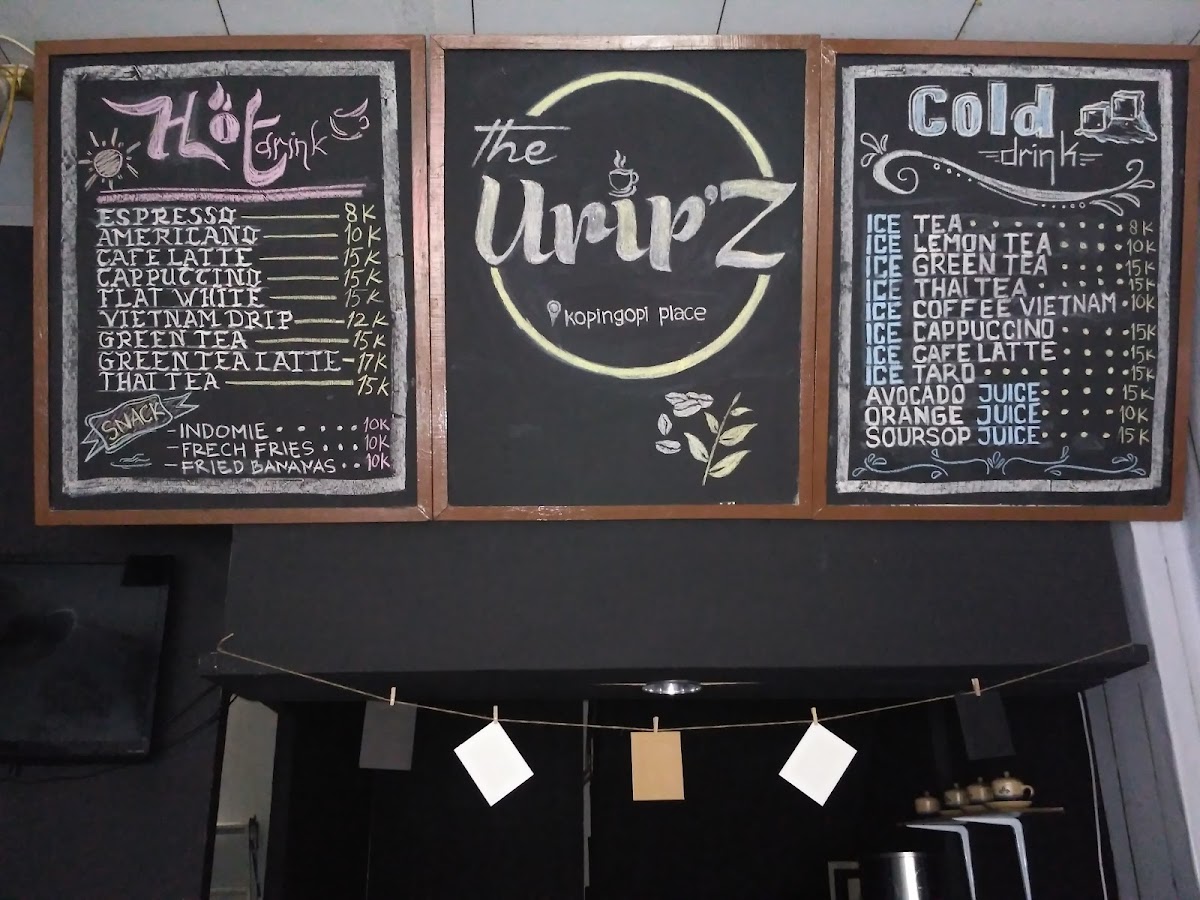 Hot
drink
ESPRESSO 8K
AMERICANO 10K
CAFE LATTE 15K
CAPPUCCINO 15K
FLAT WHITE 15K
VIETNAM DRIP 12K
GREEN TEA 15K
GREEN TEA LATTE 17K
THAI TEA 15K
SNACK
-INDOMIE ..... 10K
-FRECH FRIES ... 10K
-FRIED BANANAS .. 10K
the
Urip'Z
kopingopi place
Cold
drink
ICE TEA ....... 8K
ICE LEMON TEA .... 10K
ICE GREEN TEA .... 15K
ICE THAI TEA ..... 15K
ICE COFFEE VIETNAM . 10K
ICE CAPPUCCINO .... 15K
ICE CAFE LATTE .... 15K
ICE TARO ....... 15K
AVOCADO JUICE .... 15K
ORANGE JUICE .... 10K
SOURSOP JUICE .... 15K